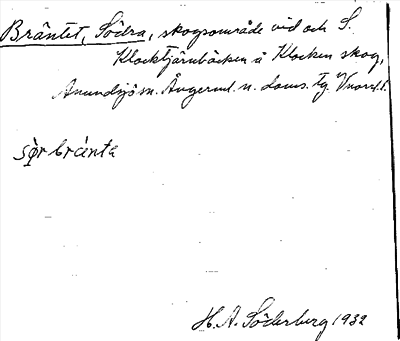 Bräntet, Södra, skogsområde vid och S.
Klocktjärnbäcken å Klocken skog,
Anundsjö sn. Ångerml. n. doms. fg. Vnorrl. l.
sør brànta
H. A. Söderberg 1932